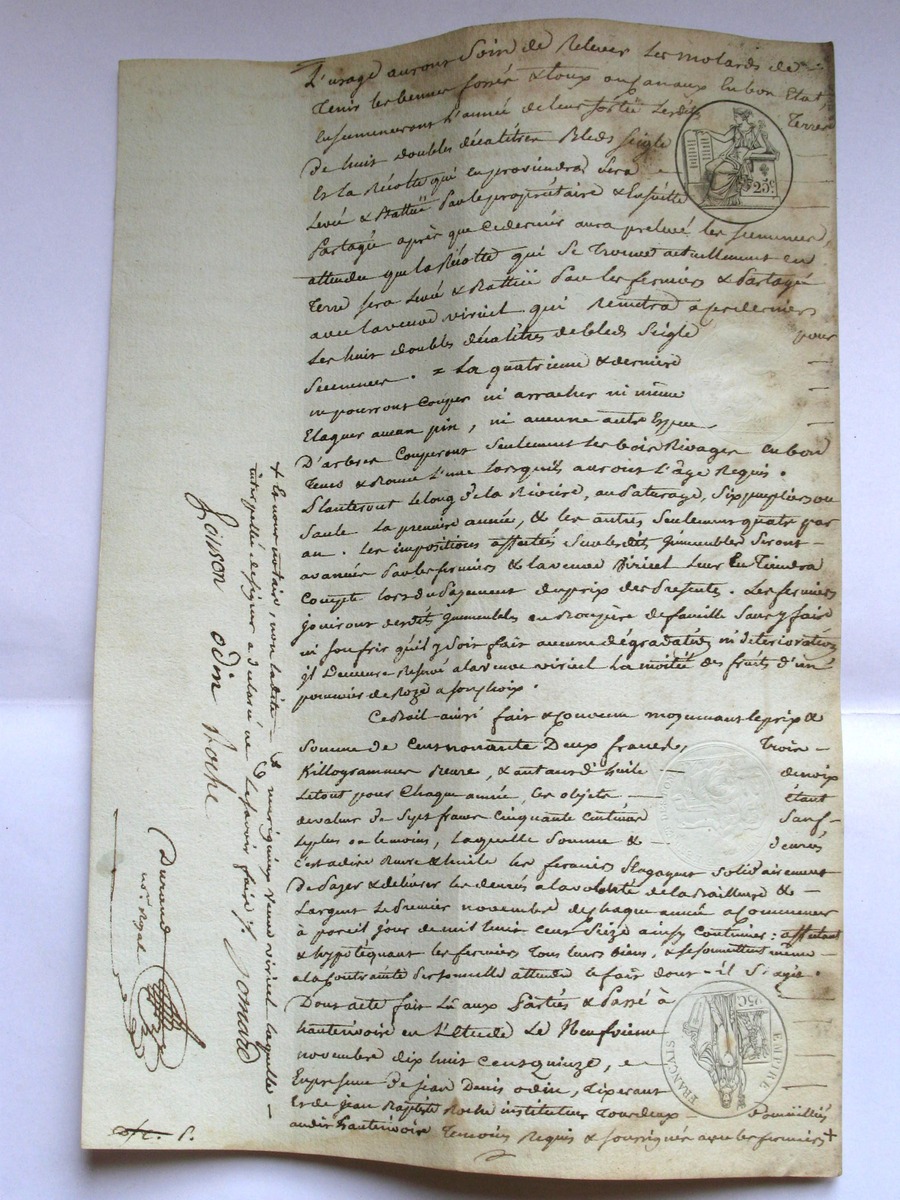 L'usage auront soin de Relever Les molards de
Tenir les bennes fossés & tous canaux En bon Etat
Ensemenceront l'année de leur sortie Lesdits Terres
De huit doubles décalitres Bleds Seigle
Et la Récolte qui en proviendra Sera
Levée & Battüe Par le propriétaire & Ensuitte
Partagée après que ce dernier aura prelevé les semences,
attendu que la Récolte qui Se Trouve actuellement en
Terre sera Levée & Battüe Par les fermiers & Partagée
avec la veuve viricel qui Remettra à ces derniers
Les huit doubles décalitres de bleds Seigle pour
Semences. = La quatrieme & derniere
ne pourront Couper ni arracher ni même
Elaguer aucun pin, ni aucune autre Espece
D'arbres Couperont Seulement les bois Rivages en bon
Tems & Saison L'une Lorsqu'ils auront L'âge Requis.
Planteront Le long de la Riviere, au Paturage, Six peupliers ou
Saule La premiere année, & les autres Seulement quatre par
an. Les impositions affectées Sur lesdits Immeubles Seront
avancées Par les fermiers & la veuve Viricel Leur En Tiendra
Compte lors du Payement du prix des Presentes. Les fermiers
jouiront desdits Immeubles en Bon père de famille Sans y faire
ni Souffrir qu'il y Soit fait aucune dégradation ni déterioration
il Demeure Reservé à la veuve viricel La moitié des fruits d'un
pommier de Roze a son choix.
Ce Bail ainsi fait & Convenu moyennant le prix &
Somme de Cent nonante Deux francs, Trois
Killogrammes Beurre, & autant d'huile de noix
Le tout pour Chaque année, Ces objets étant
de valeur de Sept francs Cinquante Centimes Sauf
le plus ou le moins, Laquelle Somme & denrées
C'est a dire Beurre & huile les fermiers S'engagent Solidairement
De Payer & delivrer les denrées a la volonté de la Bailleuse &
L'argent Le Premier novembre de chaque année a Commencer
à pareil jour de mil huit cent Seize ainsy Continuer: affectant
& hypotéquant les fermiers Tous leurs biens, & se soumettent même
a la Contrainte Personnelle attendu le fait dont il S'agit.
Dont acte fait Lû aux Parties & Passé à
hauterivoire en L'Etude Le Neufvieme
novembre dix huit Cent quinze, en
En presence De jean Denis odin,
Et de Jean Baptiste Roche instituteur Tous deux
audit hauterivoire Temoins Requis & soussignés avec les fermiers +
+ Et nous notaire, non ladite
veuve viricel Laquelle
interpellée de signer a déclaré ne Le savoir faire
odin Roche
Durand
no. Royal
25c.
EMPIRE FRANÇAIS
25C